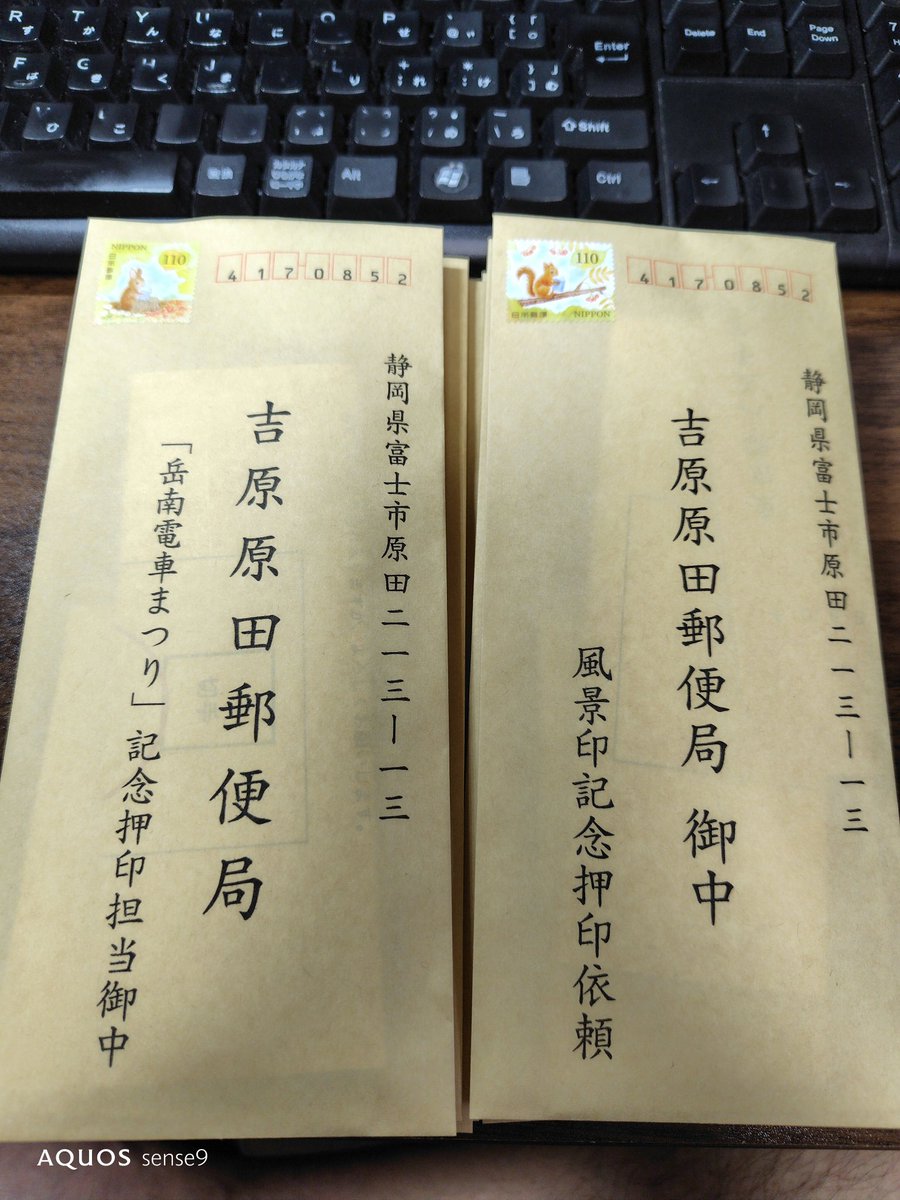 R す
T か
Y ん
U な
I に
O ら
P せ
Enter
Delete
End
Page Down
F は
G き
H く
J ま
L り
+ ; れ
* : け
ひ
こ
Shift
変換
カタカナ ひらがな ローマ字
Alt
Ctrl
NIPPON
110
日本郵便
4170852
静岡県富士市原田二一三ー一三
吉原原田郵便局
「岳南電車まつり」記念押印担当御中
110
日本郵便
NIPPON
4170852
静岡県富士市原田二一三ー一三
吉原原田郵便局 御中
風景印記念押印依頼
AQUOS sense9